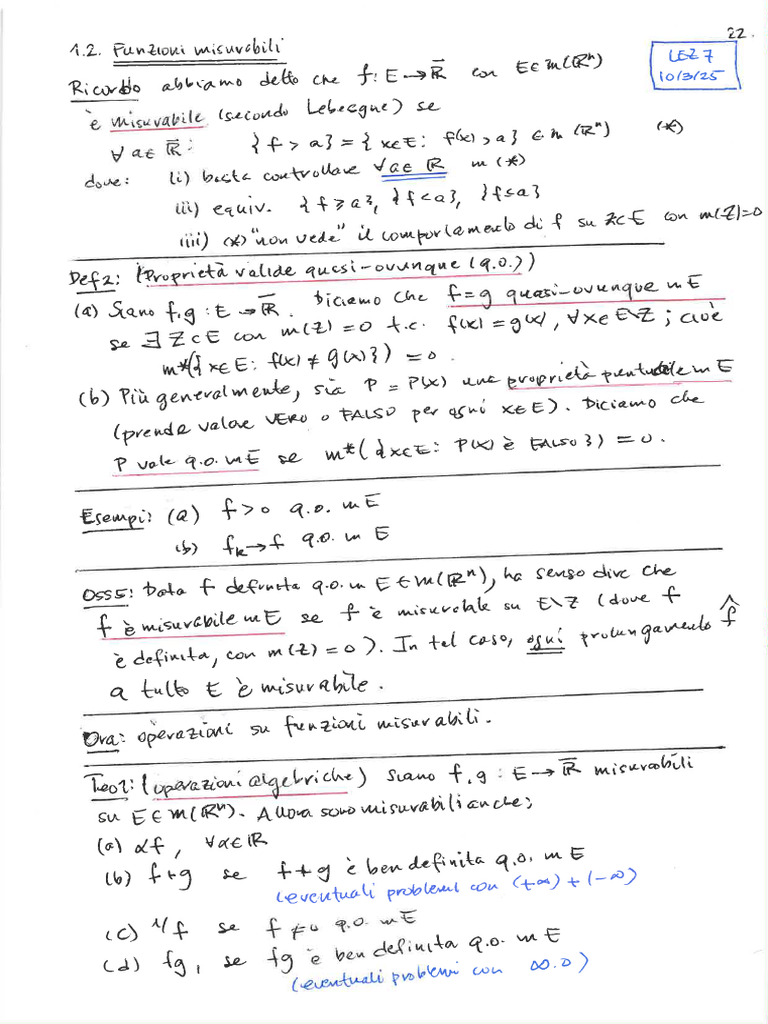 22.
LEZ 7
10/3/25
1.2. Funzioni misurabili
Ricordo abbiamo detto che f: E → R̅ con E ∈ M(Rⁿ)
è misurabile (secondo Lebesgue) se
∀ a ∈ R̅: {f > a} = {x ∈ E: f(x) > a} ∈ M(Rⁿ) (*)
dove: (i) basta controllare ∀ a ∈ R in (*)
(ii) equiv. {f ≥ a}, {f < a}, {f ≤ a}
(iii) (*) "non vede" il comportamento di f su Z ⊂ E con m(Z) = 0
Def 2: (Proprietà valide quasi-ovunque (q.o.))
(a) Siano f, g : E → R̅. Diciamo che f = g quasi-ovunque in E
se ∃ Z ⊂ E con m(Z) = 0 t.c. f(x) = g(x), ∀ x ∈ E\Z ; cioè
m*({x ∈ E: f(x) ≠ g(x)}) = 0.
(b) Più generalmente, sia P = P(x) una proprietà puntuale in E
(prende valore VERO o FALSO per ogni x ∈ E). Diciamo che
P vale q.o. in E se m*({x ∈ E: P(x) è FALSO}) = 0.
Esempi: (a) f > 0 q.o. in E
(b) fₖ → f q.o. in E
Oss 5: Data f definita q.o. in E ∈ M(Rⁿ), ha senso dire che
f è misurabile in E se f è misurabile su E\Z (dove f
è definita, con m(Z) = 0). In tal caso, ogni prolungamento f̂
a tutto E è misurabile.
Ora: operazioni su funzioni misurabili.
Teo 1: (operazioni algebriche) Siano f, g : E → R̅ misurabili
su E ∈ M(Rⁿ). Allora sono misurabili anche:
(a) αf, ∀ α ∈ R
(b) f + g se f + g è ben definita q.o. in E
(eventuali problemi con (+∞) + (-∞)
(c) 1/f se f ≠ 0 q.o. in E
(d) fg, se fg è ben definita q.o. in E
(eventuali problemi con ∞.0)